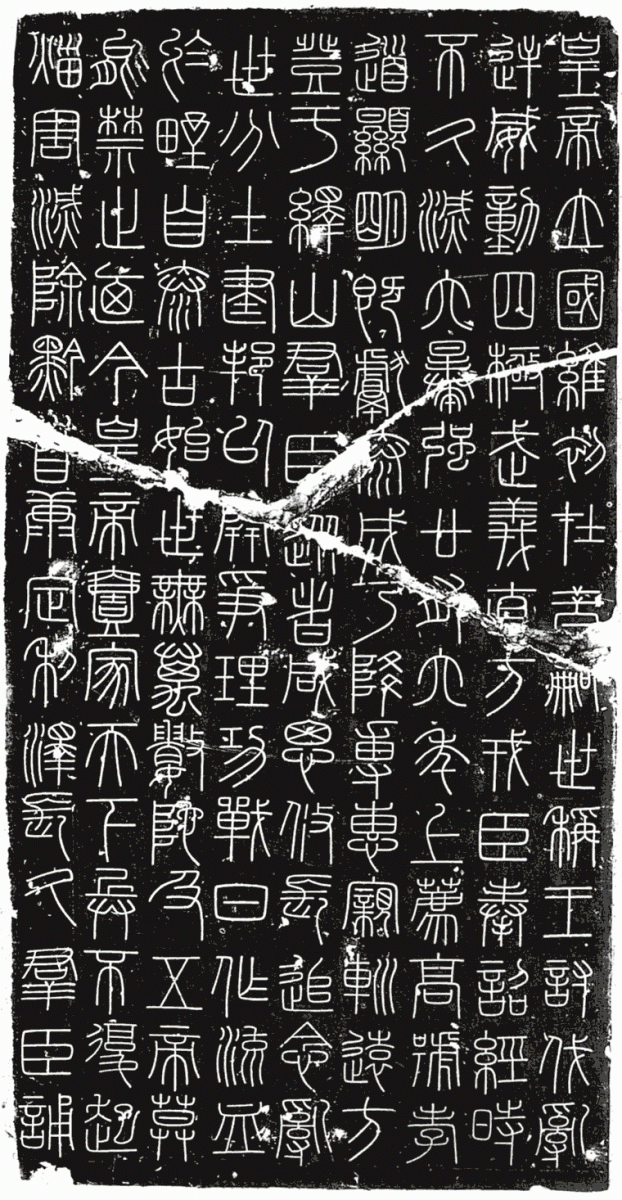 皇帝立國維初在昔嗣世稱王討伐亂
逆威動四極武義直方戎臣奉詔經時
不久滅六暴強廿有六年上薦高號孝
道顯明既獻泰成乃降尃惠寴𨊠遠方
登于繹山羣臣從者咸思攸長追念亂
世分土建邦以開爭理功戰日作流血
於野自泰古始世無萬數陀及五帝莫
能禁止廼今皇帝壹家天下兵不復起
災害滅除黔首康定利澤長久羣臣誦